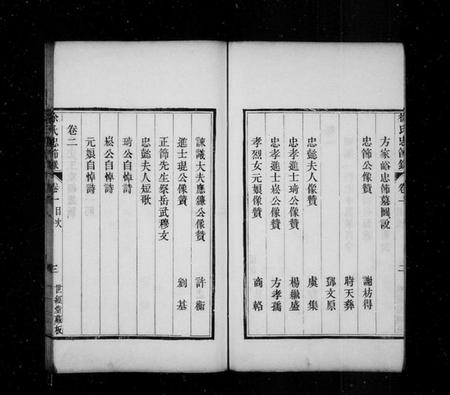 徐氏忠節錄 卷一 二
方家峪忠節墓圖說
忠節公像贊 謝枋得
時天彝
鄧文原
忠懿夫人像贊 虞集
忠孝進士琦公像贊 楊繼盛
忠孝進士崧公像贊 方孝孺
孝烈女元娘像贊 商輅
諫議大夫應鑣公像贊 許衡
進士琨公像贊 劉基
正節先生祭岳武穆文
忠懿夫人短歌
琦公自悼詩
崧公自悼詩
元娘自悼詩
卷二
徐氏忠節錄 卷一目次 三 世經堂藏板